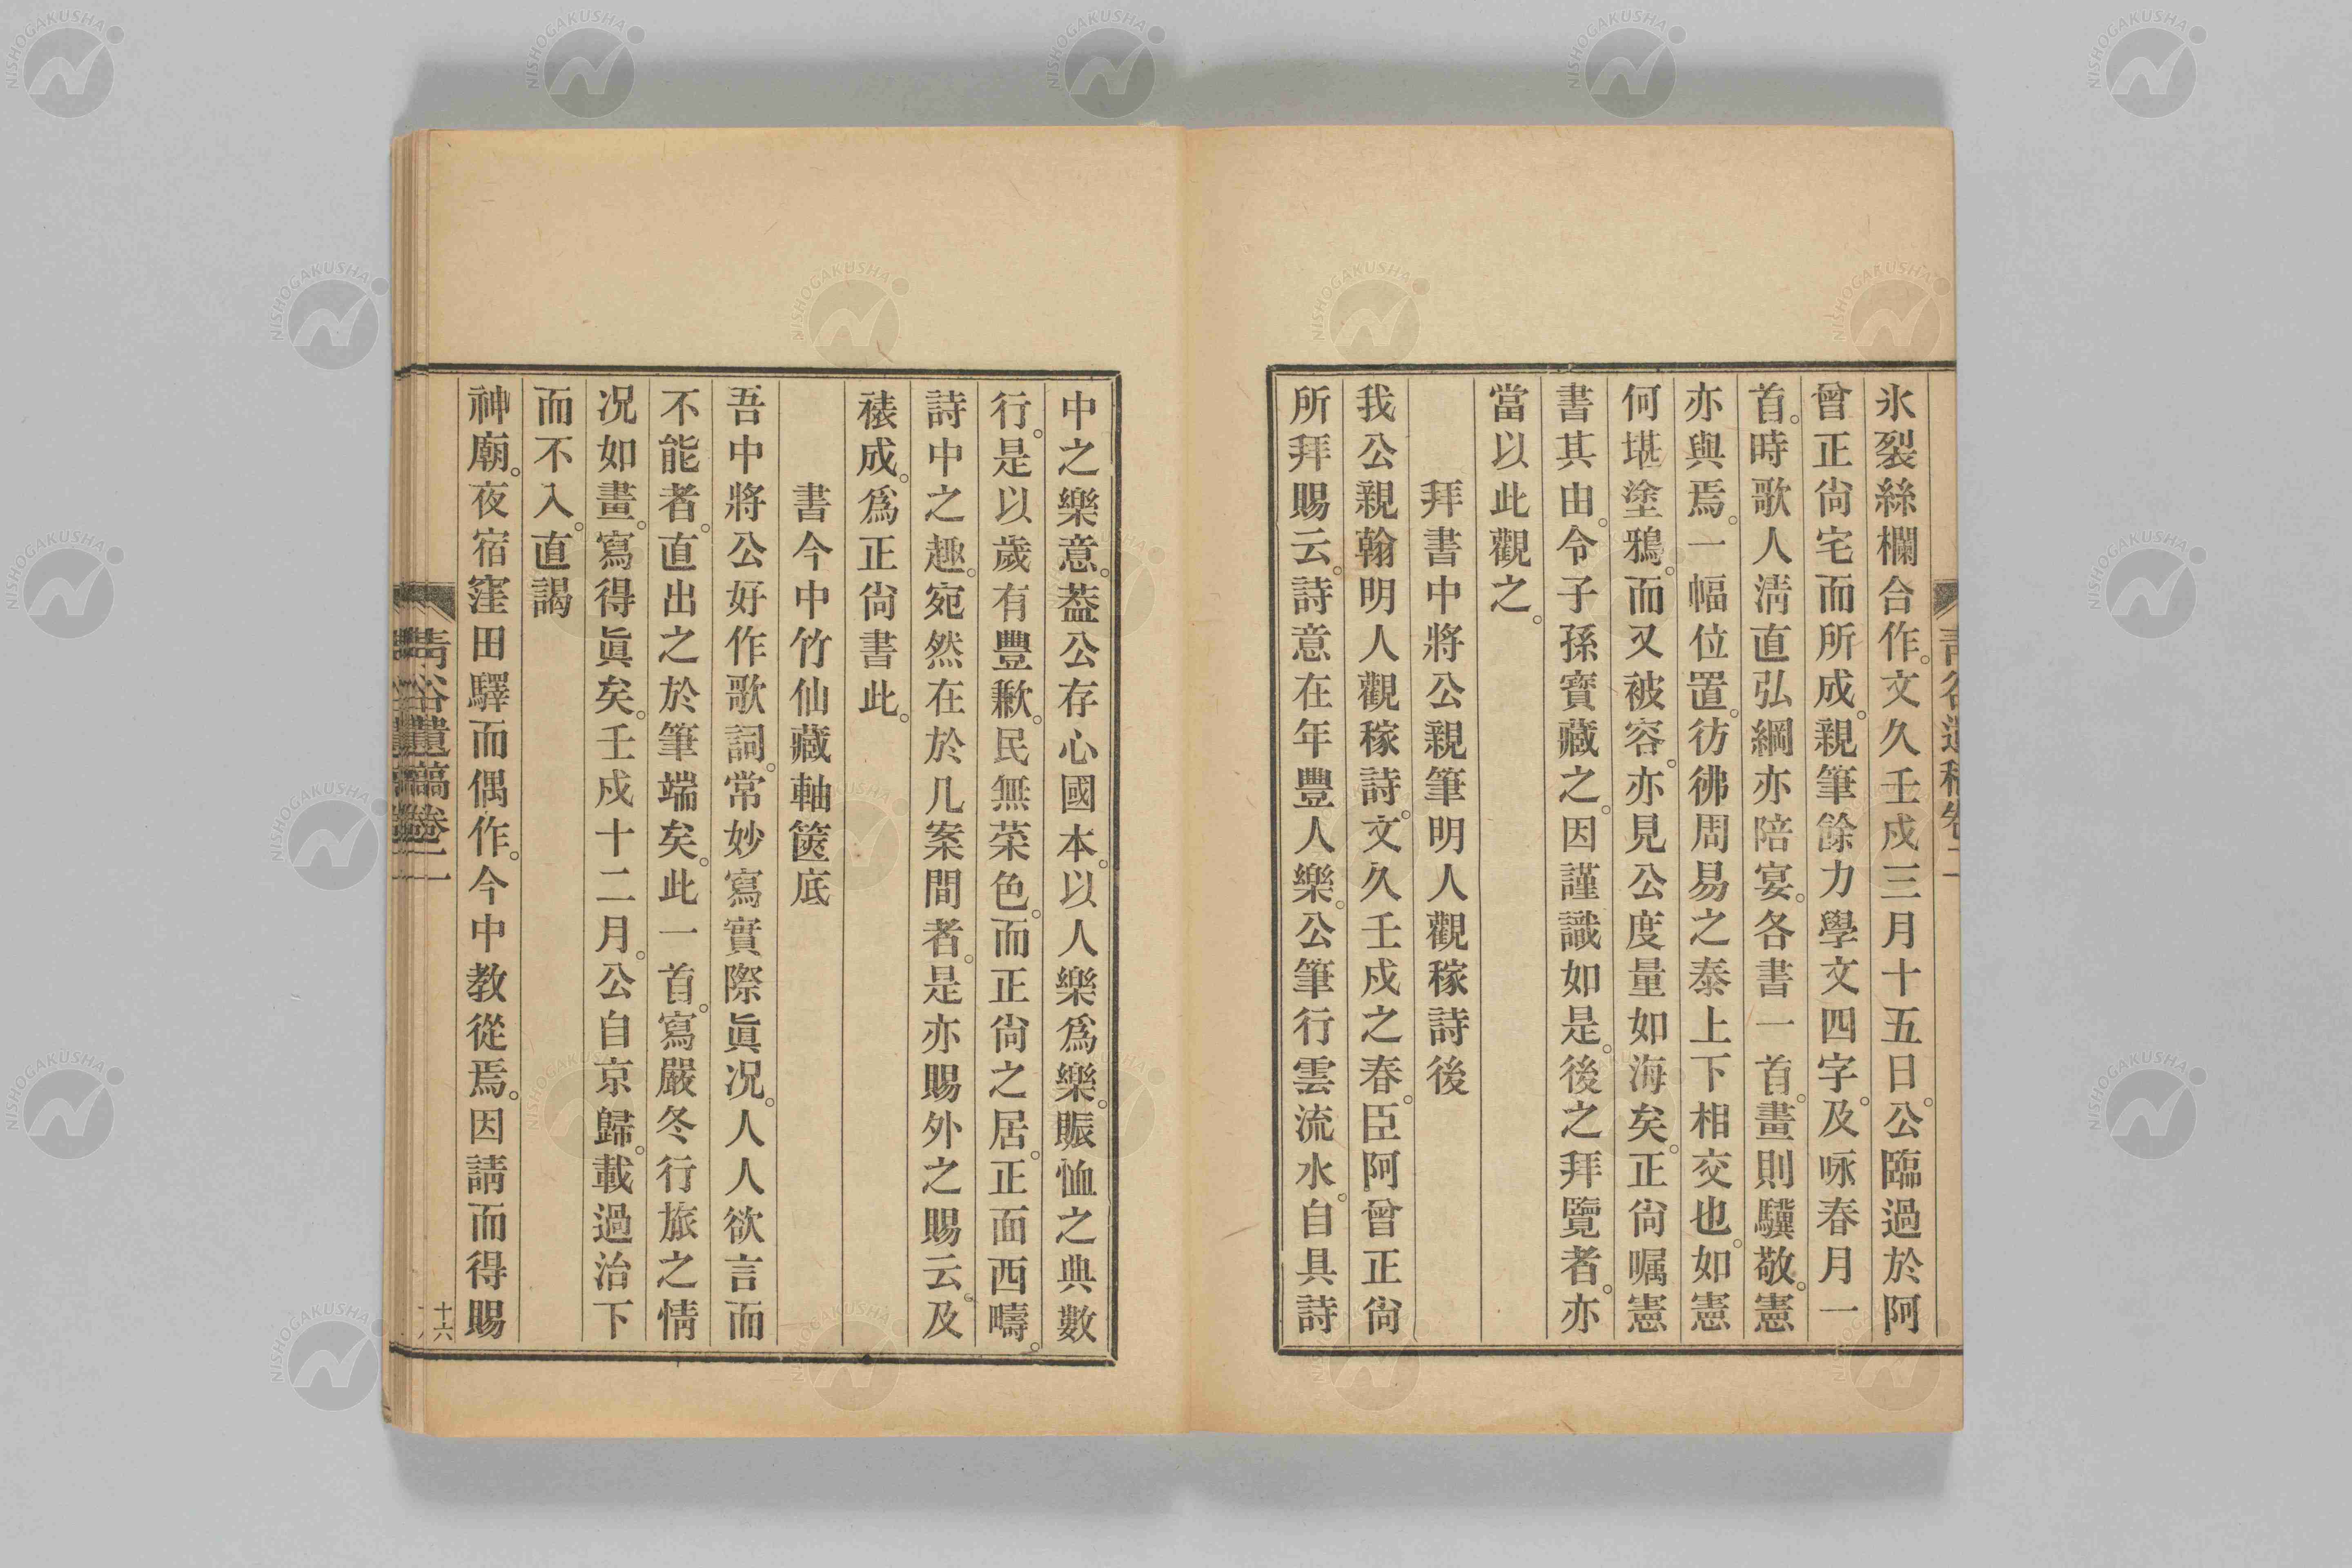 氷裂絲欄合作。文久壬戌三月十五日。公臨過於阿
曾正尙宅而所成。親筆餘力學文四字。及咏春月一
首。時歌人淸直弘綱亦陪宴。各書一首。畫則驥敬。憲
亦與焉。一幅位置。彷彿周易之泰上下相交也。如憲
何堪塗鴉。而又被容。亦見公度量如海矣。正尙嘱憲
書其由。令子孫寶藏之。因謹識如是。後之拜覽者。亦
當以此觀之。
拜書中將公親筆明人觀稼詩後
我公親翰明人觀稼詩。文久壬戌之春。臣阿曾正尙
所拜賜云。詩意在年豐人樂。公筆行雲流水。自具詩
中之樂意。葢公存心國本。以人樂爲樂。賑恤之典數
行。是以歲有豐歉。民無菜色。而正尙之居。正面西疇。
詩中之趣。宛然在於几案間者。是亦賜外之賜云。及
裱成。爲正尙書此。
書今中竹仙藏軸篋底
吾中將公好作歌詞。常妙寫實際眞况。人人欲言而
不能者。直出之於筆端矣。此一首。寫嚴冬行旅之情
况如畫。寫得眞矣。壬戌十二月。公自京歸。載過治下
而不入。直謁
神廟。夜宿窪田驛而偶作。今中敎從焉。因請而得賜
靑谷遺稿卷二
十六
NISHOGAKUSHA